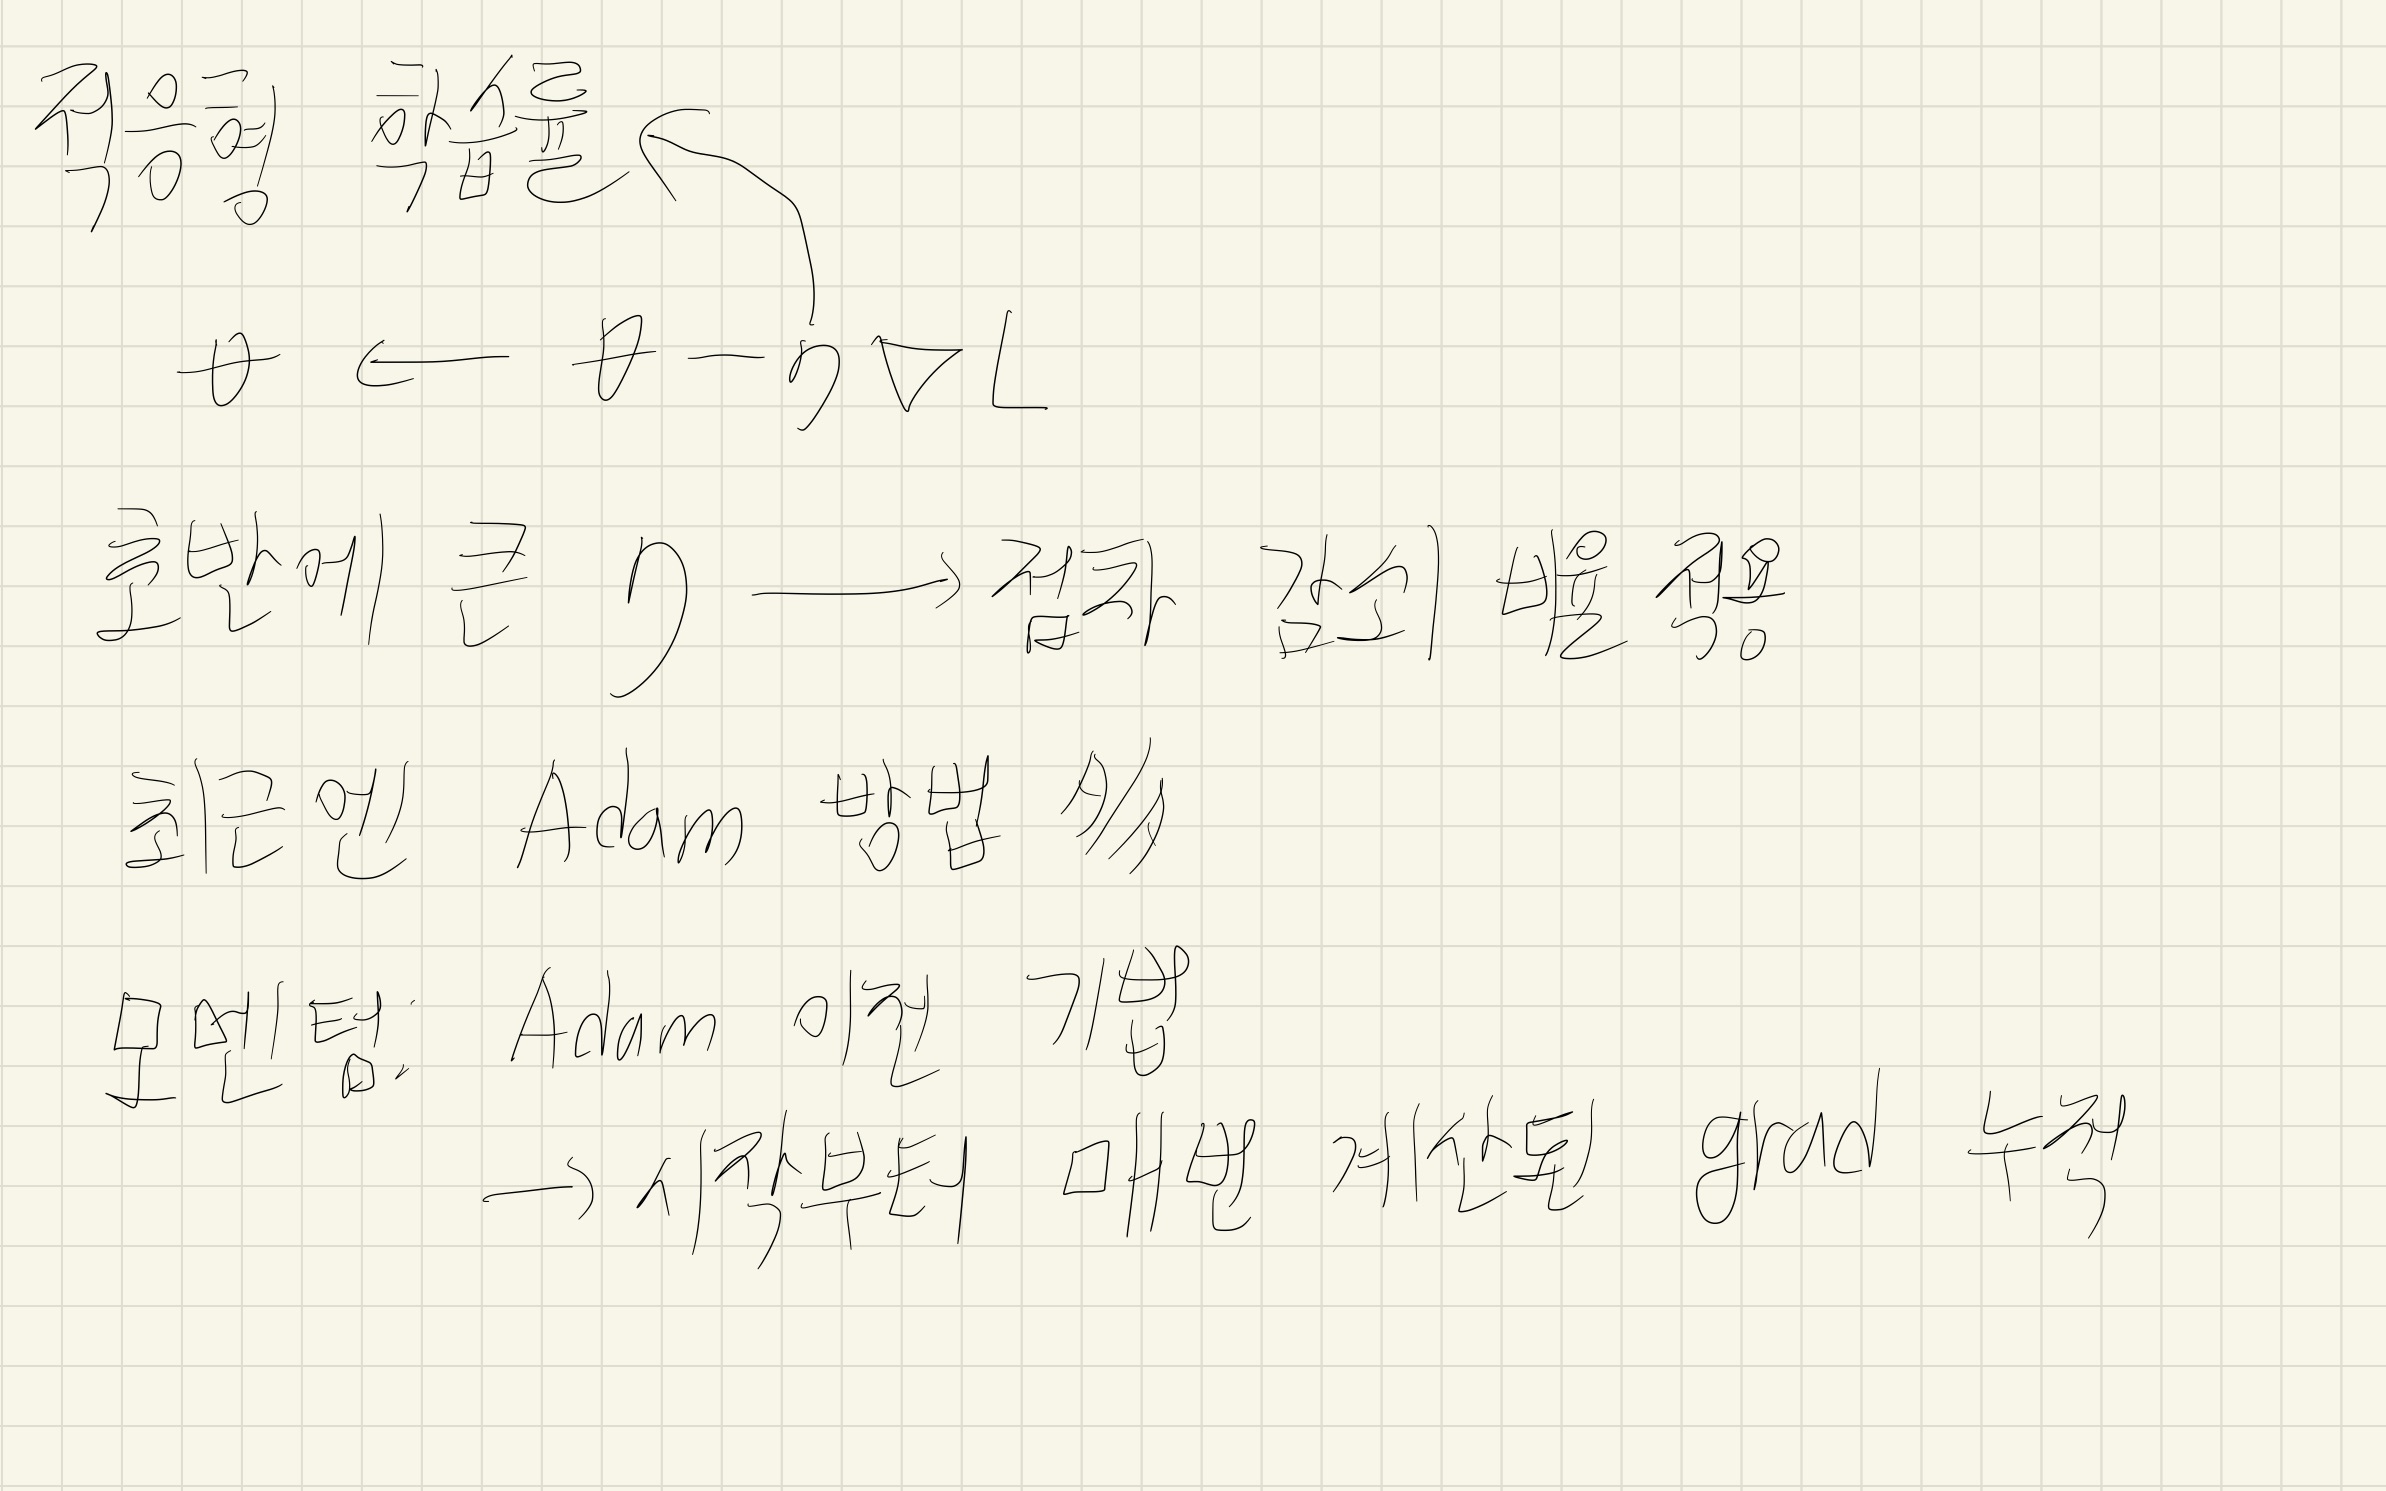 적응형 학습률
θ ← θ - η∇L
초반에 큰 η → 점차 감소 비율 적용
최근엔 Adam 방법 多
모멘텀: Adam 이전 기법
→ 시작부터 매번 계산된 grad 누적